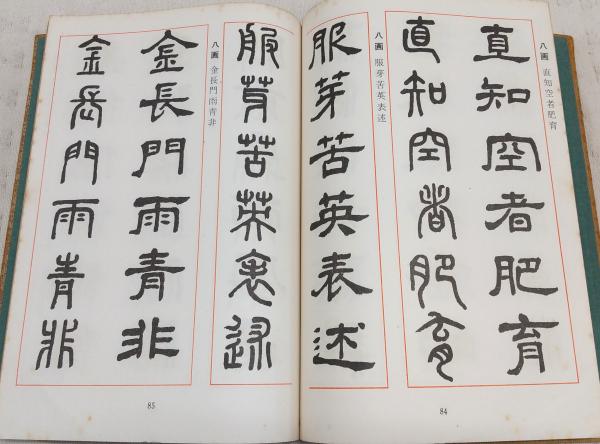 八画 直知空者肥育
直知空者肥育
直知空者肥育
八画 服芽苦英表述
服芽苦英表述
84
服芽苦英表述
八画 金長門雨青非
金長門雨青非
金長門雨青非
85